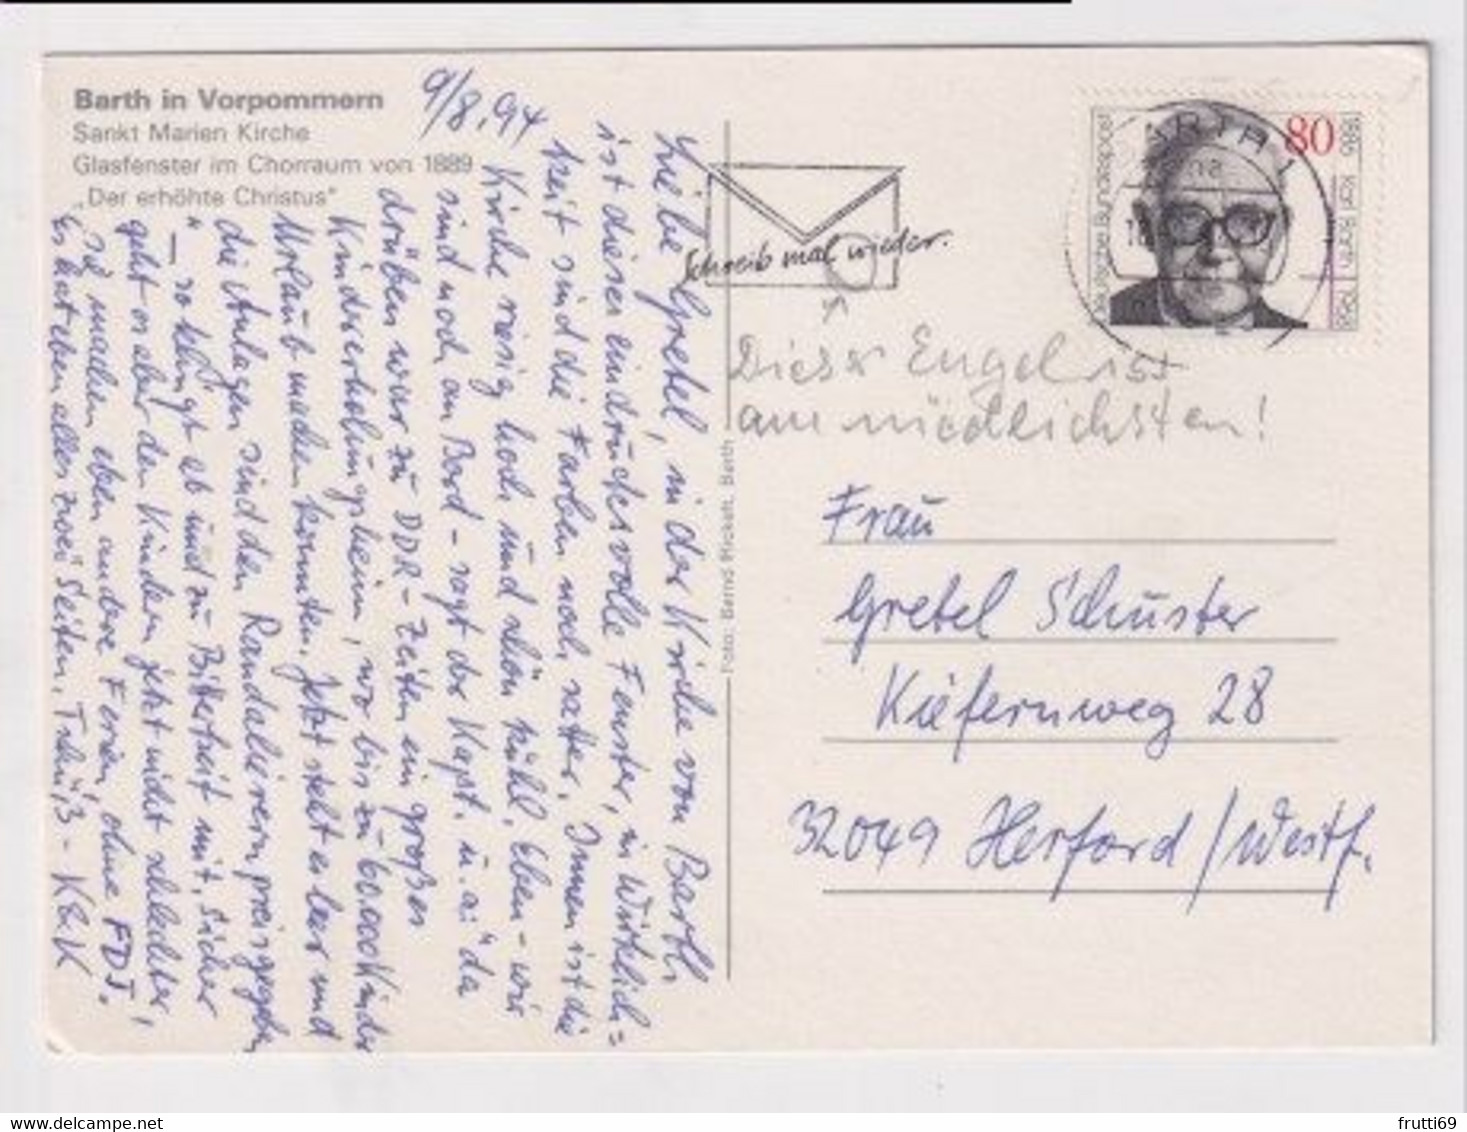 Barth in Vorpommern
Sankt Marien Kirche
Glasfenster im Chorraum von 1889
"Der erhöhte Christus"
9/8.94
Liebe Gretel, in der Kirche von Barth
ist dieses eindrucksvolle Fenster, in Wirklich=
keit sind die Farben noch satter. Innen ist die
Kirche riesig hoch und schön kühl. Eben - wir
sind noch an Bord - sagt der Kapt. u. a. "da
drüben war zu DDR-Zeiten ein großes
Kindererholungsheim, wo bis zu 60.000 Kinder
Urlaub machen konnten. Jetzt steht es leer und
die Anlagen sind den Randalierern preisgegeben
" — so klingt ab und zu Bitterkeit mit. Sicher
geht es aber den Kindern jetzt nicht schlechter,
sie machen eben andere Ferien, ohne FDJ.
Es hat eben alles zwei Seiten. K
Foto: Bernd Rickelt, Barth
Schreib mal wieder.
Dieser Engel ist
am niedlichsten!
80
Deutsche Bundespost
1886 Karl Barth 1968
Frau
Gretel Schuster
Kiefernweg 28
32049 Herford/Westf.
frutti69